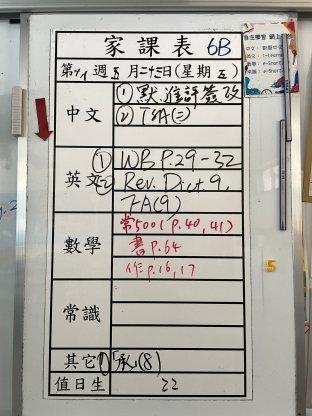 家課表 6B
第十八週五月二十三日(星期五)
中文
① 默,進評簽改
② TSA(二)
英文
① WB P.29-32
② Rev. Dict.9,
TA(9)
數學
常500(p.40,41)
書p.64
作p.16,17
常識
其它
①「承」(8)
值日生
22
自主學習 網上
5